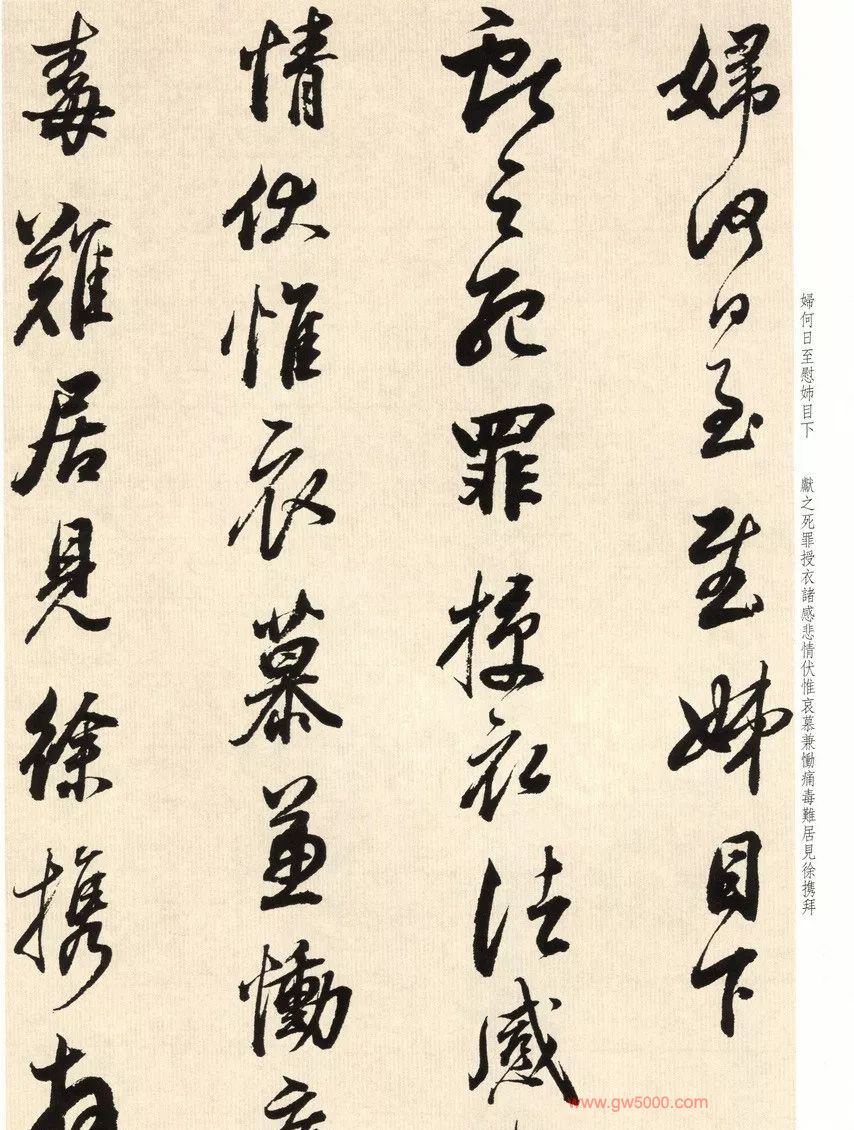 婦何日至慰姊目下
獻之死罪授衣諸感
情伏惟哀慕兼慟
毒難居見徐携
婦何日至慰姊目下 獻之死罪授衣諸感悲情伏惟哀慕兼慟痛毒難居見徐携拜
www.gw5000.com